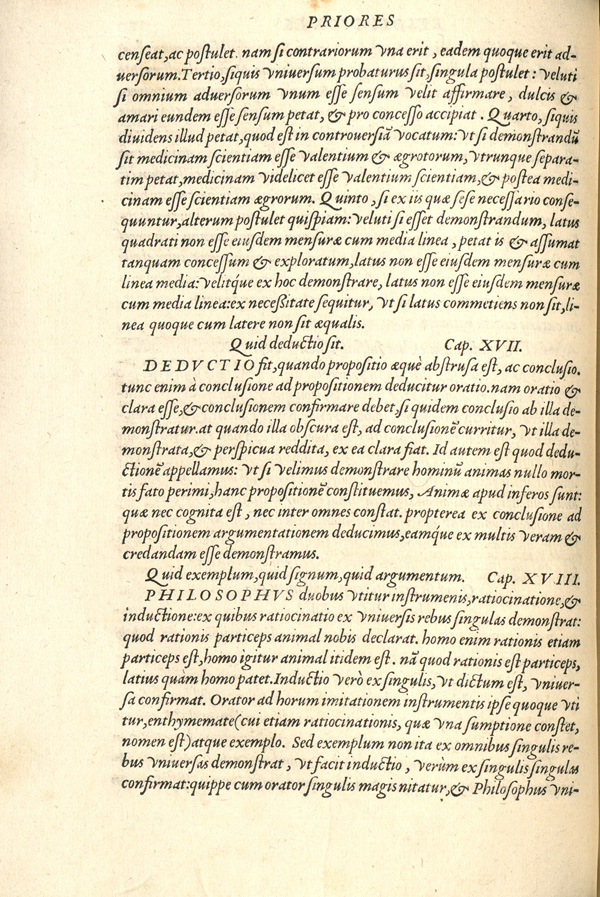 PRIORES
censeat, ac postulet. nam si contrariorum vna erit, eadem quoque erit ad-
uersorum. Tertio, siquis vniuersum probaturus sit, singula postulet: veluti
si omnium aduersorum vnum esse sensum velit affirmare, dulcis &
amari eundem esse sensum petat, & pro concesso accipiat. Quarto, siquis
diuidens illud petat, quod est in controuersiã vocatum: vt si demonstrandũ
sit medicinam scientiam esse valentium & ægrotorum, vtrunque separa-
tim petat, medicinam videlicet esse valentium scientiam, & postea medi-
cinam esse scientiam ægrorum. Quinto, si ex iis quæ sese necessario conse-
quuntur, alterum postulet quispiam: veluti si esset demonstrandum, latus
quadrati non esse eiusdem mensuræ cum media linea, petat is & assumat
tanquam concessum & exploratum, latus non esse eiusdem mensuræ cum
linea media: velitq́ue ex hoc demonstrare, latus non esse eiusdem mensuræ
cum media linea: ex necessitate sequitur, vt si latus commetiens non sit, li-
nea quoque cum latere non sit æqualis.
Quid deductio sit. Cap. XVII.
DEDVCTIO fit, quando propositio æquè abstrusa est, ac conclusio.
tunc enim à conclusione ad propositionem deducitur oratio. nam oratio &
clara esse, & conclusionem confirmare debet, si quidem conclusio ab illa de-
monstratur. at quando illa obscura est, ad conclusionẽ curritur, vt illa de-
monstrata, & perspicua reddita, ex ea clara fiat. Id autem est quod dedu-
ctionẽ appellamus: vt si velimus demonstrare hominũ animas nullo mor-
tis fato perimi, hanc propositionẽ constituemus, Animæ apud inferos sunt:
quæ nec cognita est, nec inter omnes constat. propterea ex conclusione ad
propositionem argumentationem deducimus, eamq́ue ex multis veram &
credandam esse demonstramus.
Quid exemplum, quid signum, quid argumentum. Cap. XVIII.
PHILOSOPHVS duobus vtitur instrumenis, ratiocinatione, &
inductione: ex quibus ratiocinatio ex vniuersis rebus singulas demonstrat:
quod rationis particeps animal nobis declarat. homo enim rationis etiam
particeps est, homo igitur animal itidem est. nã quod rationis est particeps,
latius quàm homo patet. Inductio verò ex singulis, vt dictum est, vniuer-
sa confirmat. Orator ad horum imitationem instrumentis ipse quoque vti
tur, enthymemate (cui etiam ratiocinationis, quæ vna sumptione constet,
nomen est) atque exemplo. Sed exemplum non ita ex omnibus singulis re-
bus vniuersas demonstrat, vt facit inductio, verùm ex singulis singulas
confirmat: quippe cum orator singulis magis nitatur, & Philosophus vni-